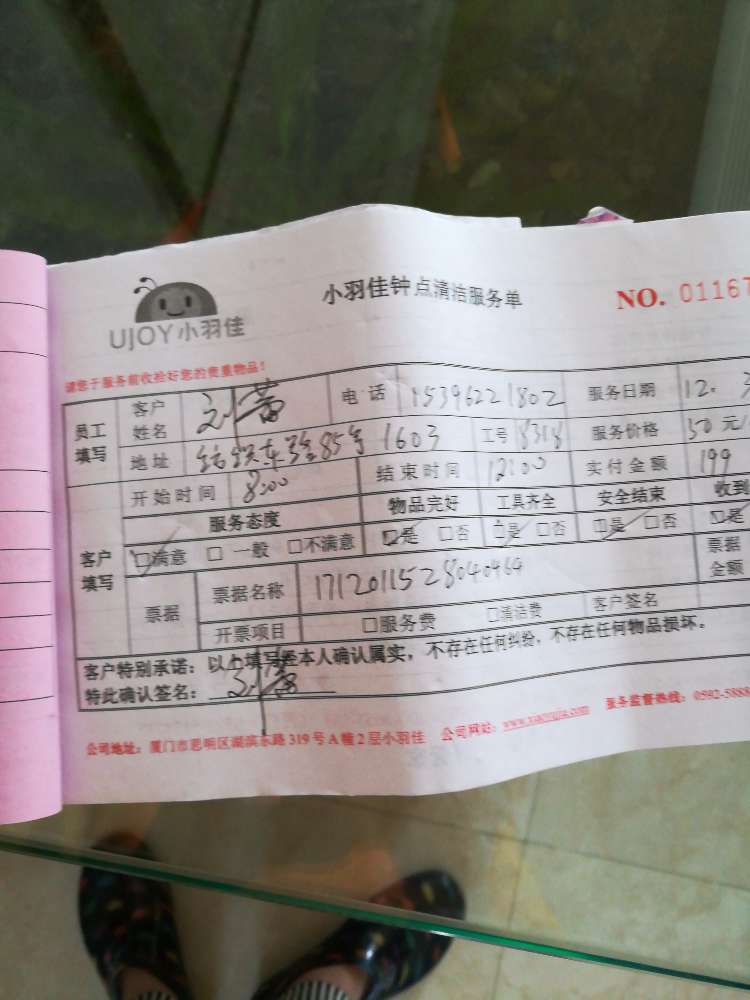 UJOY小羽佳
小羽佳钟点清洁服务单
NO. 01167
请您于服务前收拾好您的贵重物品!
员工填写 客户姓名 电话 15396221802 服务日期 12.
地址 85号 1603 工号 8318 服务价格 50元/
开始时间 8:00 结束时间 12:00 实付金额 199
服务态度 物品完好 工具齐全 安全结束 收到
客户填写 □满意 □ 一般 □不满意 □是 □否 □是 □否 □是 □否 □是
票据 票据名称 1712011528040464 票据金额
开票项目 □服务费 □清洁费 客户签名
客户特别承诺：以上填写经本人确认属实，不存在任何纠纷，不存在任何物品损坏。
特此确认签名：
公司地址：厦门市思明区湖滨东路319号A幢2层小羽佳 公司网站：www.xiaoyujia.com 服务监督热线：0592-5888